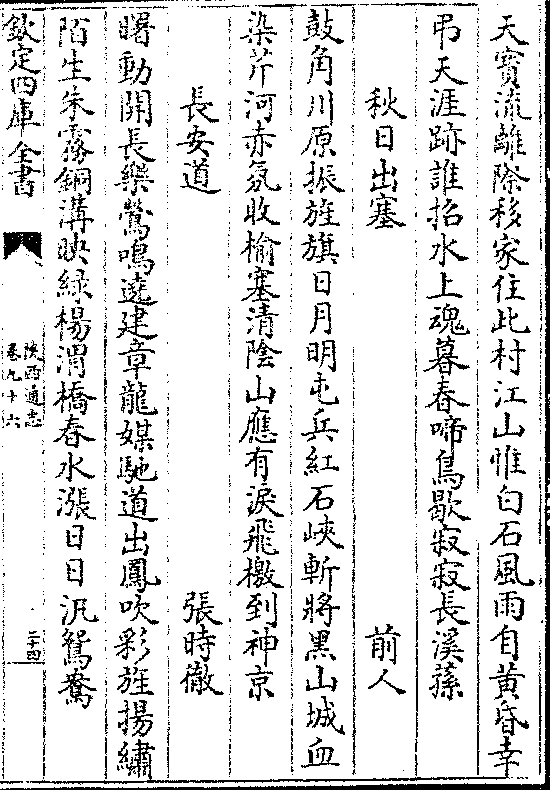 天寳流離際移家住此村江山惟白石風雨自黄昏幸
弔天涯跡誰招水上魂暮春啼鳥歇寂寂長溪蓀
秋日出塞　前人
鼓角川原振旌旗日月明屯兵紅石峽斬將黒山城血
染芹河赤氛收榆塞清陰山應有淚飛檄到神京
長安道　張時徹
曙動開長樂鶯鳴遶建章龍媒馳道出鳳吹彩旌揚繡
陌生朱霧銅溝映緑楊渭橋春水漲日日汎鴛鴦
欽定四庫全書
陜西通志
卷九十六
二十四